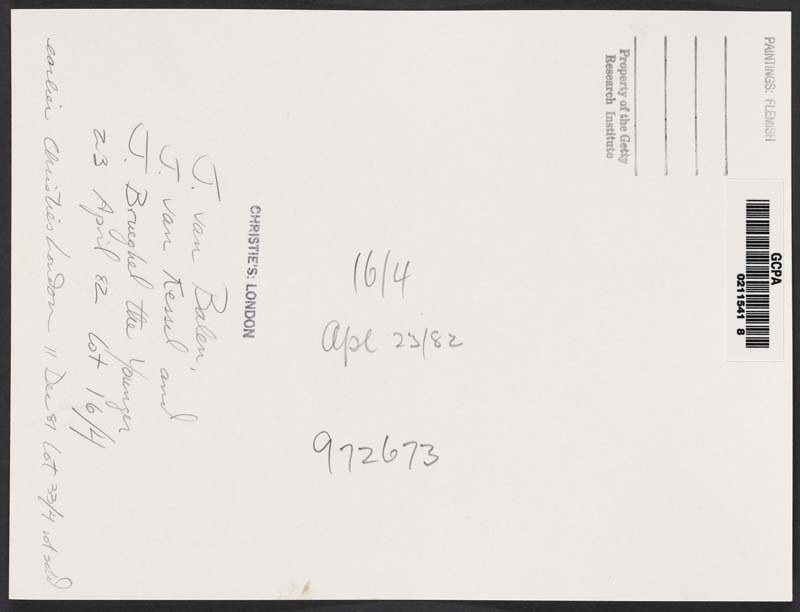 PAINTINGS: FLEMISH
Property of the Getty
Research Institute
GCPA
0211541 8
CHRISTIE'S: LONDON
J. van Balen,
J. van Kessel and
J. Brueghel the Younger
23 April 82 lot 16/4
earlier Christies London 11 Dec 81 lot 33/4 not sold
16/4
Apl 23/82
972673